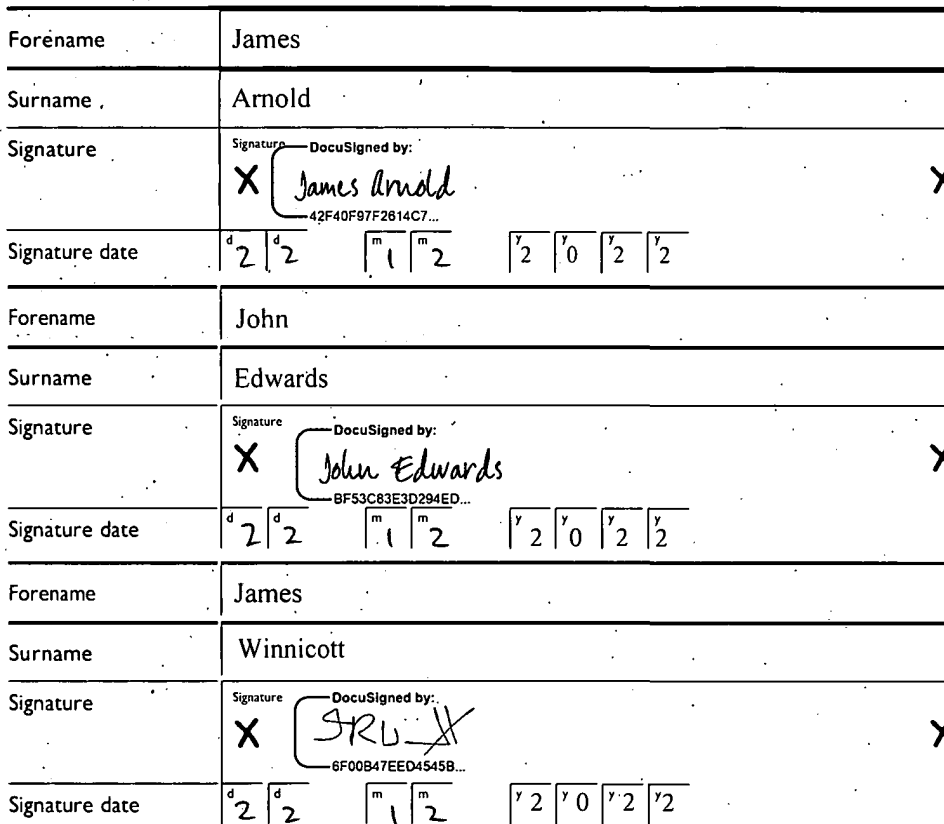 Forename James
Surname Arnold
Signature Signature DocuSigned by:
X James Arnold X
42F40F97F2614C7...
Signature date d 2 d 2 m 1 m 2 y 2 y 0 y 2 y 2
Forename John
Surname Edwards
Signature Signature DocuSigned by:
X John Edwards X
BF53C83E3D294ED...
Signature date d 2 d 2 m 1 m 2 y 2 y 0 y 2 y 2
Forename James
Surname Winnicott
Signature Signature DocuSigned by:
X X
6F00B47EED4545B...
Signature date d 2 d 2 m 1 m 2 y 2 y 0 y 2 y 2